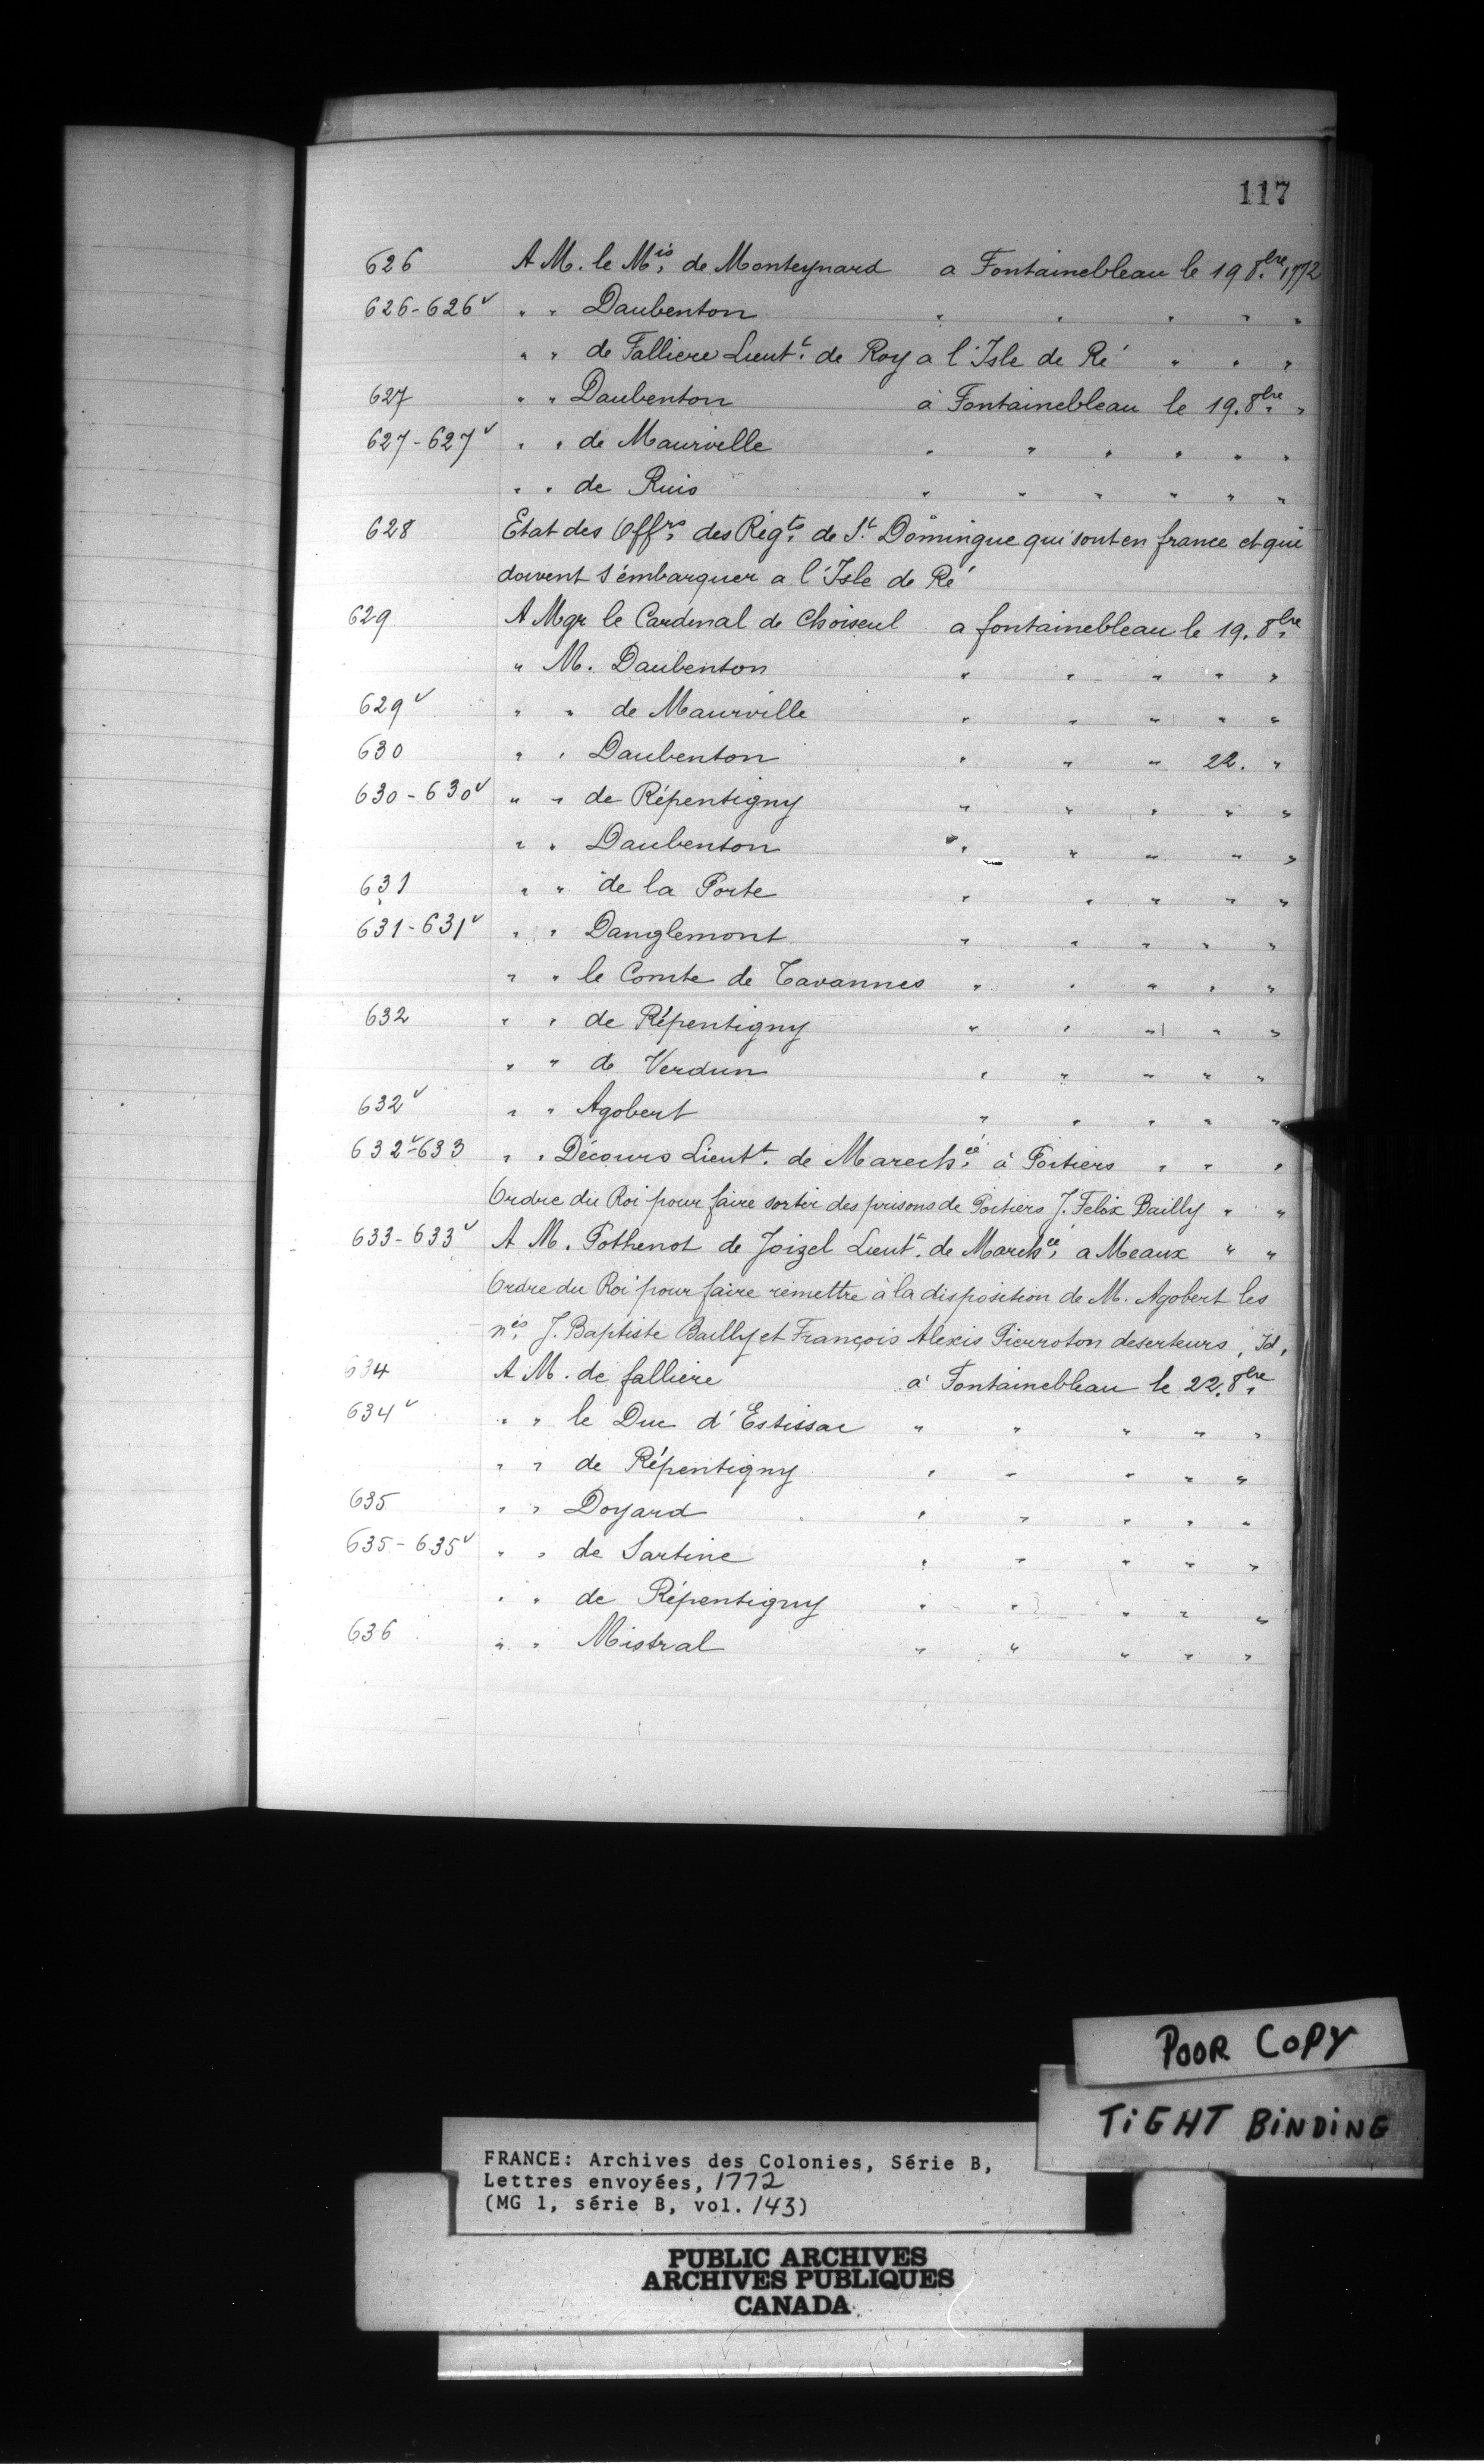 117
626 A M. le Mis. de Monteynard a Fontainebleau le 19 8.bre 1772
626-626v " " Daubenton " " " " "
" " de Falliere Lieutt. de Roy a l'Isle de Ré " " "
627 " " Daubenton à Fontainebleau le 19. 8bre. "
627-627v " " de Maurville " " " " " "
" " de Ruis " " " " " "
628 Etat des Offrs. des Régts. de St. Domingue qui sont en france et qui
doivent s'émbarquer a l'Isle de Ré
629 A Mgr le Cardinal de Choiseul a fontainebleau le 19. 8bre.
" M. Daubenton " " " " "
629v " " de Maurville " " " " "
630 " " Daubenton " " " 22. "
630-630v " " de Répentigny " " " " "
" " Daubenton " " " " "
631 " " de la Porte " " " " "
631-631v " " Danglemont " " " " "
" " le Comte de Tavannes " " " " "
632 " " de Répentigny " " " " "
" " de Verdun " " " " "
632v " " Agobert " " " " "
632v-633 " " Décours Lieutt. de Marechée. à Poitiers " " "
Ordre du Roi pour faire sortir des prisons de Poitiers J. Felix Bailly " "
633-633v A M. Pothenot de Joizel Lieutt. de Marchée. a Meaux " "
Ordre du Roi pour faire remettre à la disposition de M. Agobert les
nés. J. Baptiste Bailly et François Alexis Pierroton deserteurs, Id,
634 A M. de falliere a Fontainebleau le 22. 8bre.
634v " " le Duc d'Estissac " " " " "
" " de Répentigny " " " " "
635 " " Doyard " " " " "
635-635v " " de Sartine " " " " "
" " de Répentigny " " " " "
636 " " Mistral " " " " "
POOR COPY
TIGHT BINDING
FRANCE: Archives des Colonies, Série B,
Lettres envoyées, 1772
(MG 1, série B, vol. 143)
PUBLIC ARCHIVES
ARCHIVES PUBLIQUES
CANADA